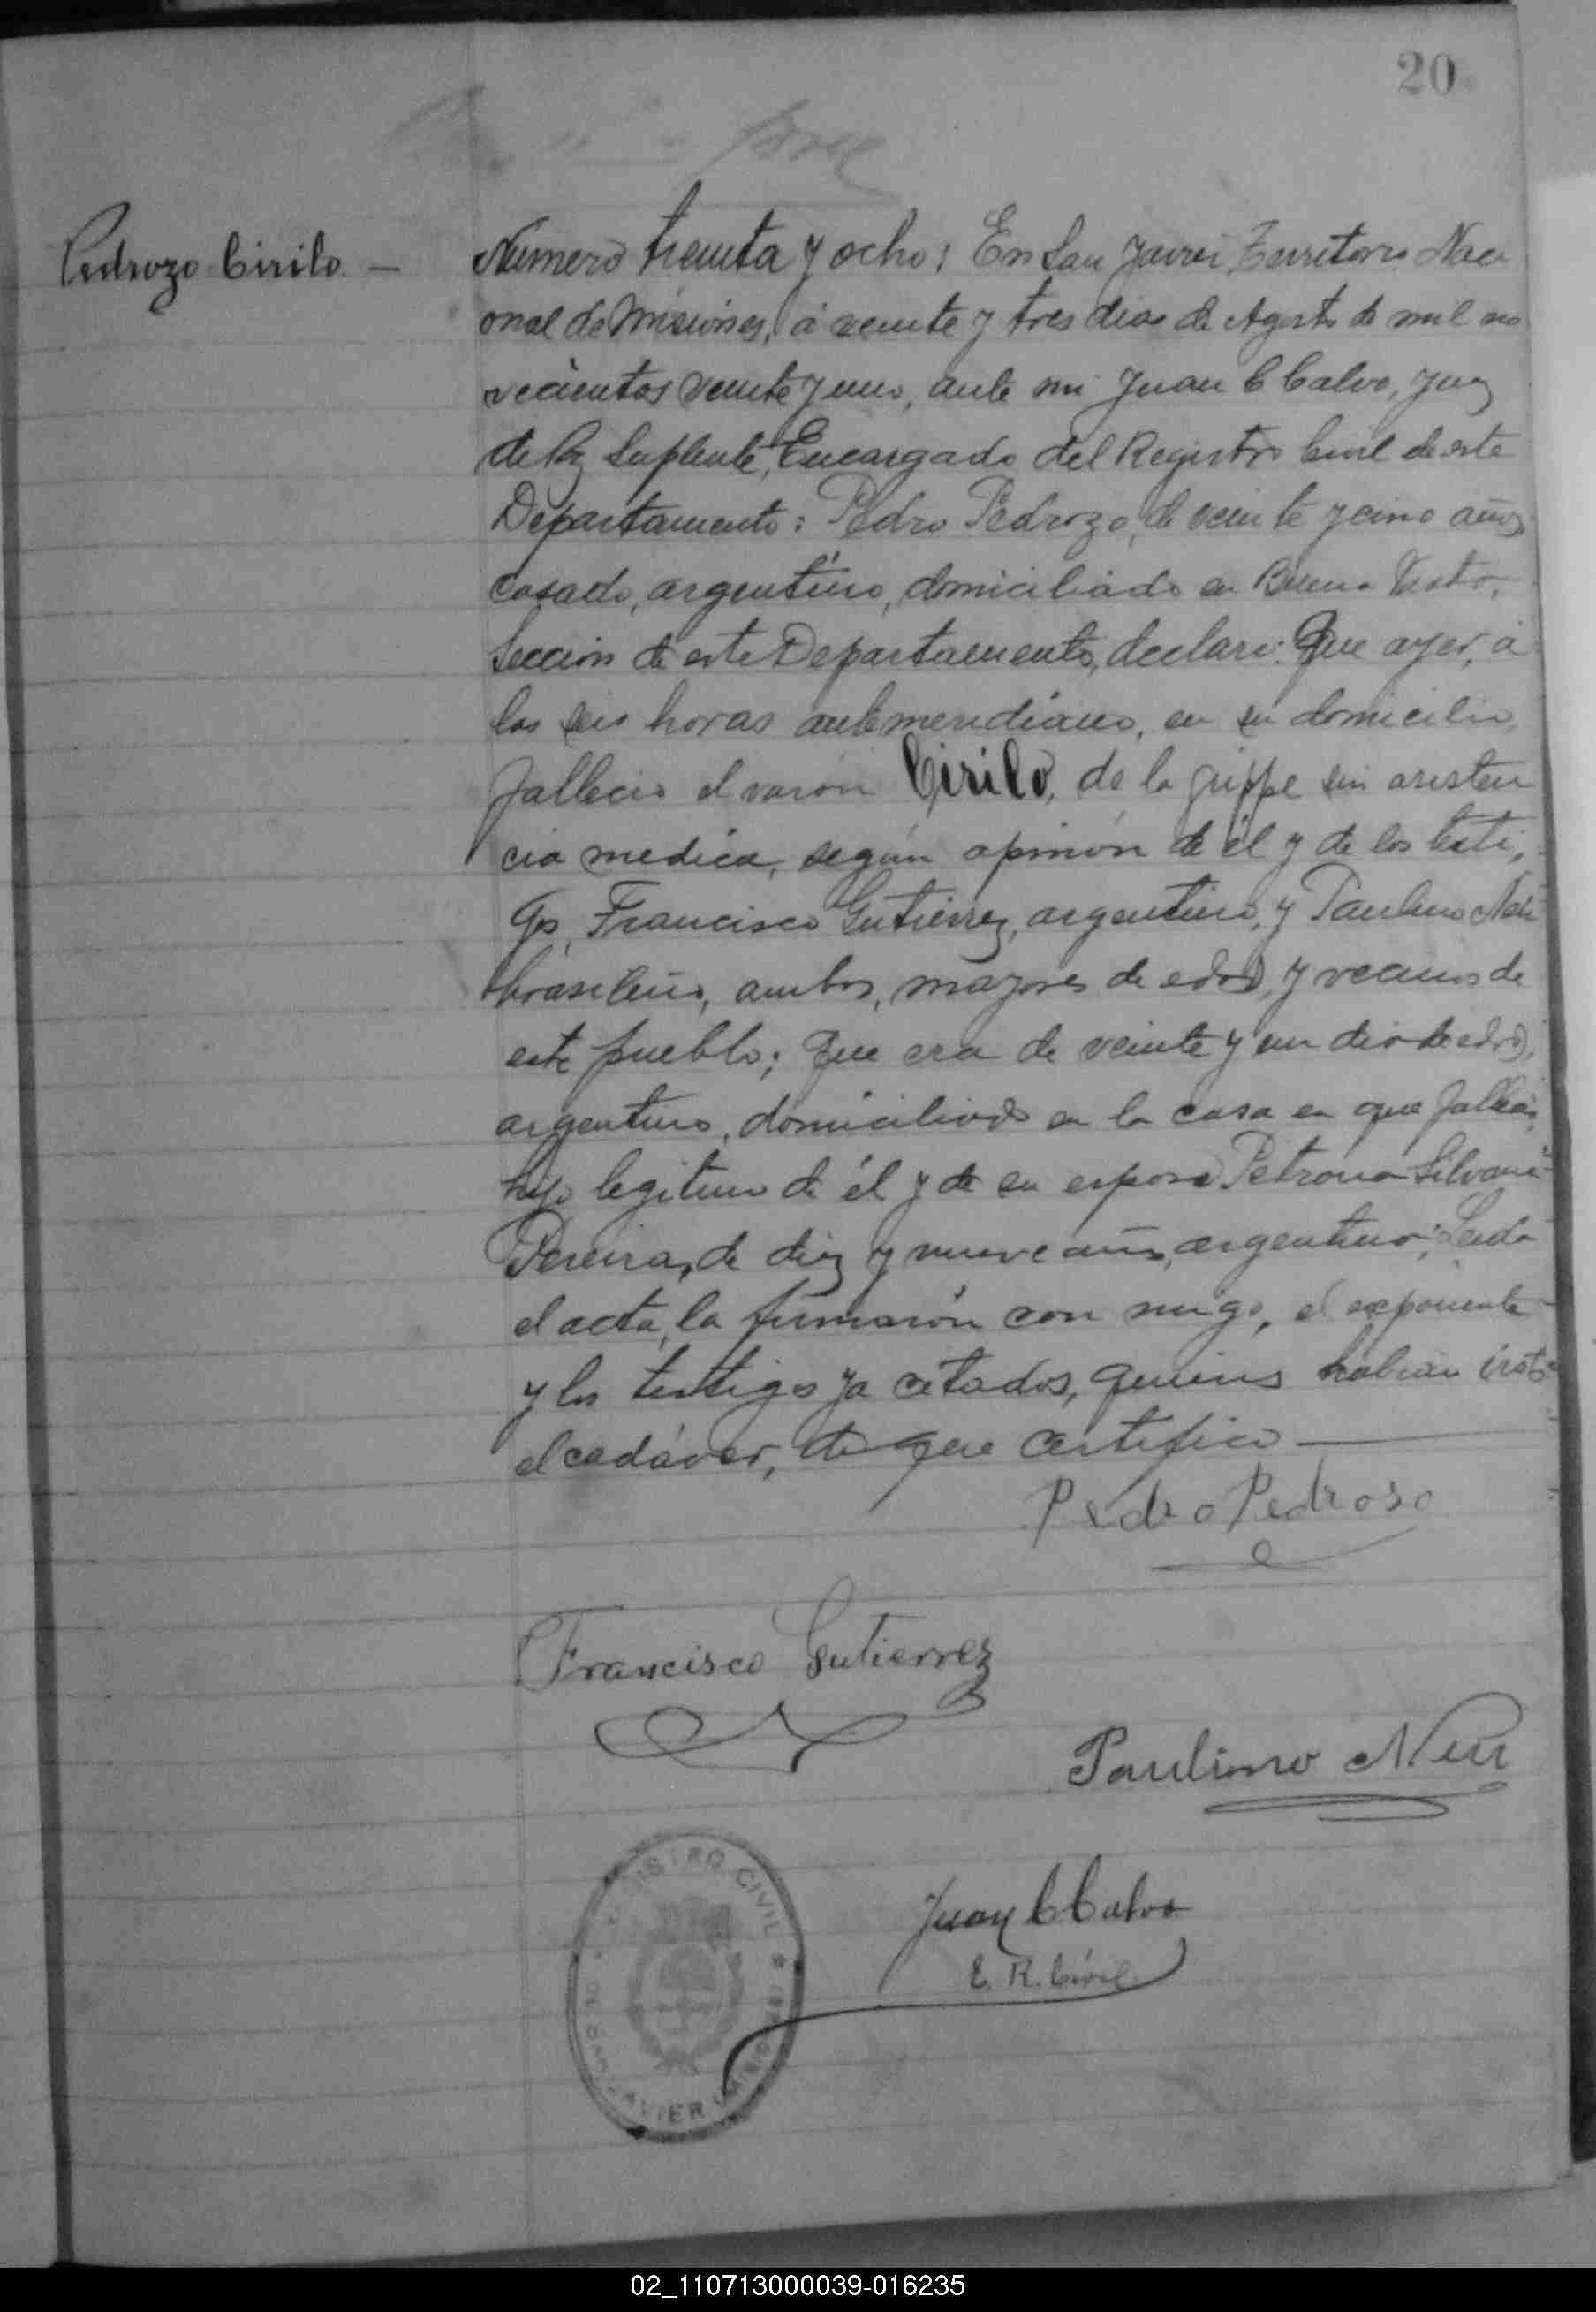 20
Pedrozo Cirilo —
Numero treinta y ocho: En San Javier, Territorio Naci
onal de Misiones, á veinte y tres dias de Agosto de mil no
vecientos veinte y uno, ante mi Juan C Calvo, Juez
de Paz Suplente, Encargado del Registro Civil de este
Departamento: Pedro Pedrozo, de veinte y cinco años,
casado, argentino, domiciliado en Buena Vista,
Sección de este Departamento, declaró: Que ayer, á
las seis horas antemeridiano, en su domicilio,
falleció el varón Cirilo, de la grippe sin asisten
cia medica, según opinión de él y de los testi,
gos, Francisco Gutierrez, argentino, y Paulino
brasileño, ambos, mayores de edad, y vecinos de
este pueblo; que era de veinte y un dia de edad,
argentino, domiciliado en la casa en que falleció,
hijo legitimo de él y de su esposa Petrona Silvana
Pereira, de diez y nueve años, argentina; Leida
el acta, la firmarón con migo, el exponente
y los testigos ya citados, quienes habian visto
el cadáver, de que certifico —
Pedro Pedroso
Francisco Gutierrez
Paulino
Juan C Calvo
E. R. Civil
REGISTRO CIVIL
JAVIER
02_110713000039-016235